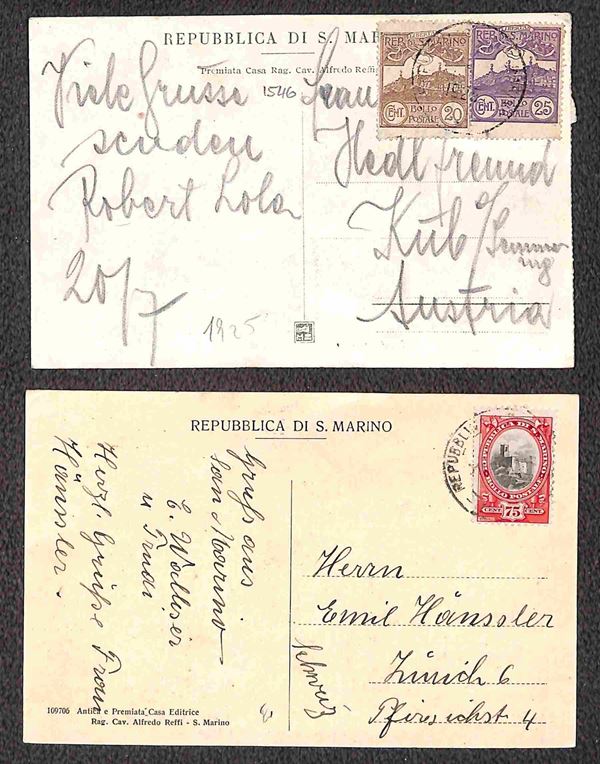 REPUBBLICA DI S. MAR
Premiata Casa Rag. Cav. Alfredo Reffi
1546
Viele Grüsse
senden
Robert Lola
20/7
1925
Frau
Hedl Freund
Küb /
Semme-
ring
Austria
REP. S. MARINO
CENT. 20
BOLLO
POSTALE
REP. S. MARINO
BOLLO
POSTALE
CENT. 25
REPUBBLICA DI S. MARINO
Gruß aus
San Marino
E. Walliser
u Trudi
Herzl. Grüße Frau
Hänssler.
109706 Antica e Premiata Casa Editrice
Rag. Cav. Alfredo Reffi - S. Marino
REPUBBLI
REPUBBLICA DI S. MARINO
BOLLO POSTALE
CENT 75 CENT
Herrn
Emil Hänssler
Zürich 6
Pfirsichst 4
Schweiz